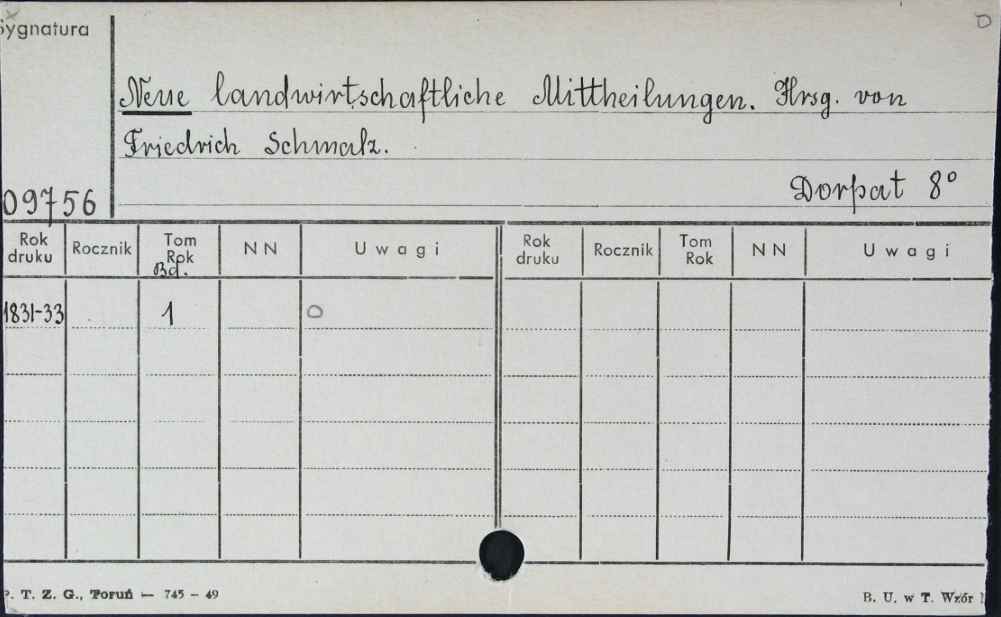 Sygnatura
Neue landwirtschaftliche Mittheilungen. Hrsg. von
Friedrich Schmalz.
Dorpat 8°
09756
Rok druku Rocznik Tom Rok Bd. NN Uwagi Rok druku Rocznik Tom Rok NN Uwagi
1831-33 1 O
P. T. Z. G., Toruń — 745 – 49 B. U. w T. Wzór